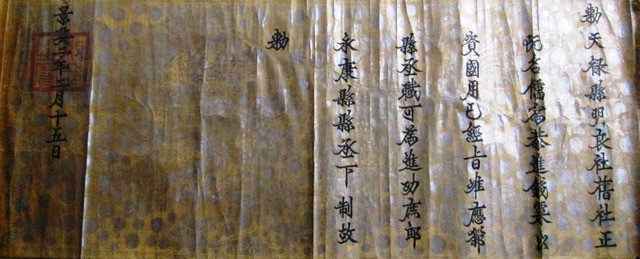 勅天祿縣明良社舊社正
阮名儒爲恭進錢粟以
資國用已經旨准應
縣丞職可爲進功庶郎
永康縣縣丞下制故
勅
景興年月十五日